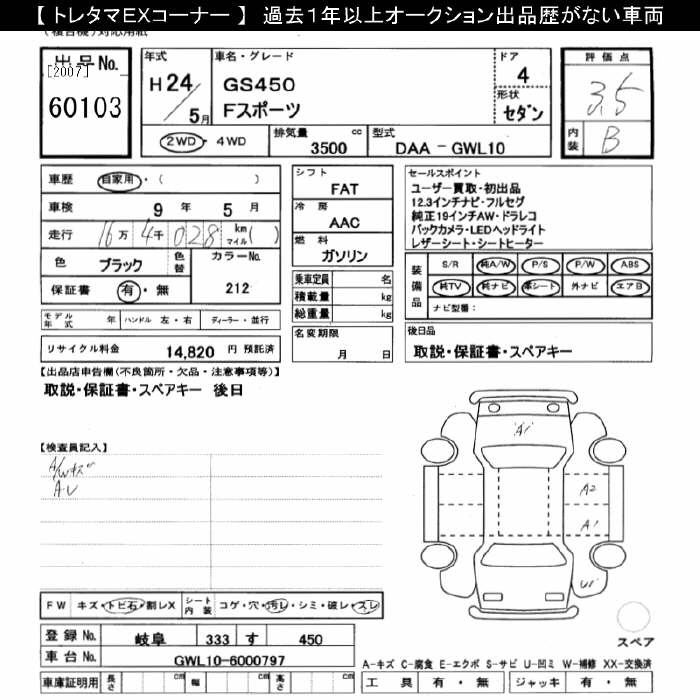 【 トレタマEXコーナー 】 過去1年以上オークション出品歴がない車両
出品No.
[2007]
60103
年式
H 24 / 5月
車名・グレード
GS450
Fスポーツ
ドア
4
形状
セダン
2WD・4WD
排気量 3500 cc
型式 DAA－GWL10
評価点
3.5
内装
B
車歴 自家用・( )
車検 9年 5月
走行 16万 4千 028 km マイル( )
色 ブラック 色替 カラーNo.
212
保証書 有・無
モデル年式 年 ハンドル 左・右 ディーラー・並行
リサイクル料金 14,820 円 預託済
シフト
FAT
冷房
AAC
燃料
ガソリン
乗車定員 名
積載量 kg
総重量 kg
名変期限
月 日
セールスポイント
ユーザー買取・初出品
12.3インチナビ・フルセグ
純正19インチAW・ドラレコ
バックカメラ・LEDヘッドライト
レザーシート・シートヒーター
装備品
S/R 純A/W P/S P/W ABS
純TV 純ナビ 革シート 外ナビ エアB
ナビ型番:
後日品
取説・保証書・スペアキー
【出品店申告欄(不良箇所・欠品・注意事項等)】
取説・保証書・スペアキー 後日
【検査員記入】
A/Wキズ
A・U
A1
A2
A1
U1
スペア
FW キズ・トビ石・割レX シート内装 コゲ・穴・汚レ・シミ・破レ・スレ
登録No. 岐阜 333 す 450
車台No. GWL10-6000797
車庫証明用 長さ cm 幅 cm 高さ cm
A-キズ C-腐食 E-エクボ S-サビ U-凹ミ W-補修 XX-交換済
工具 有・無 ジャッキ 有・無